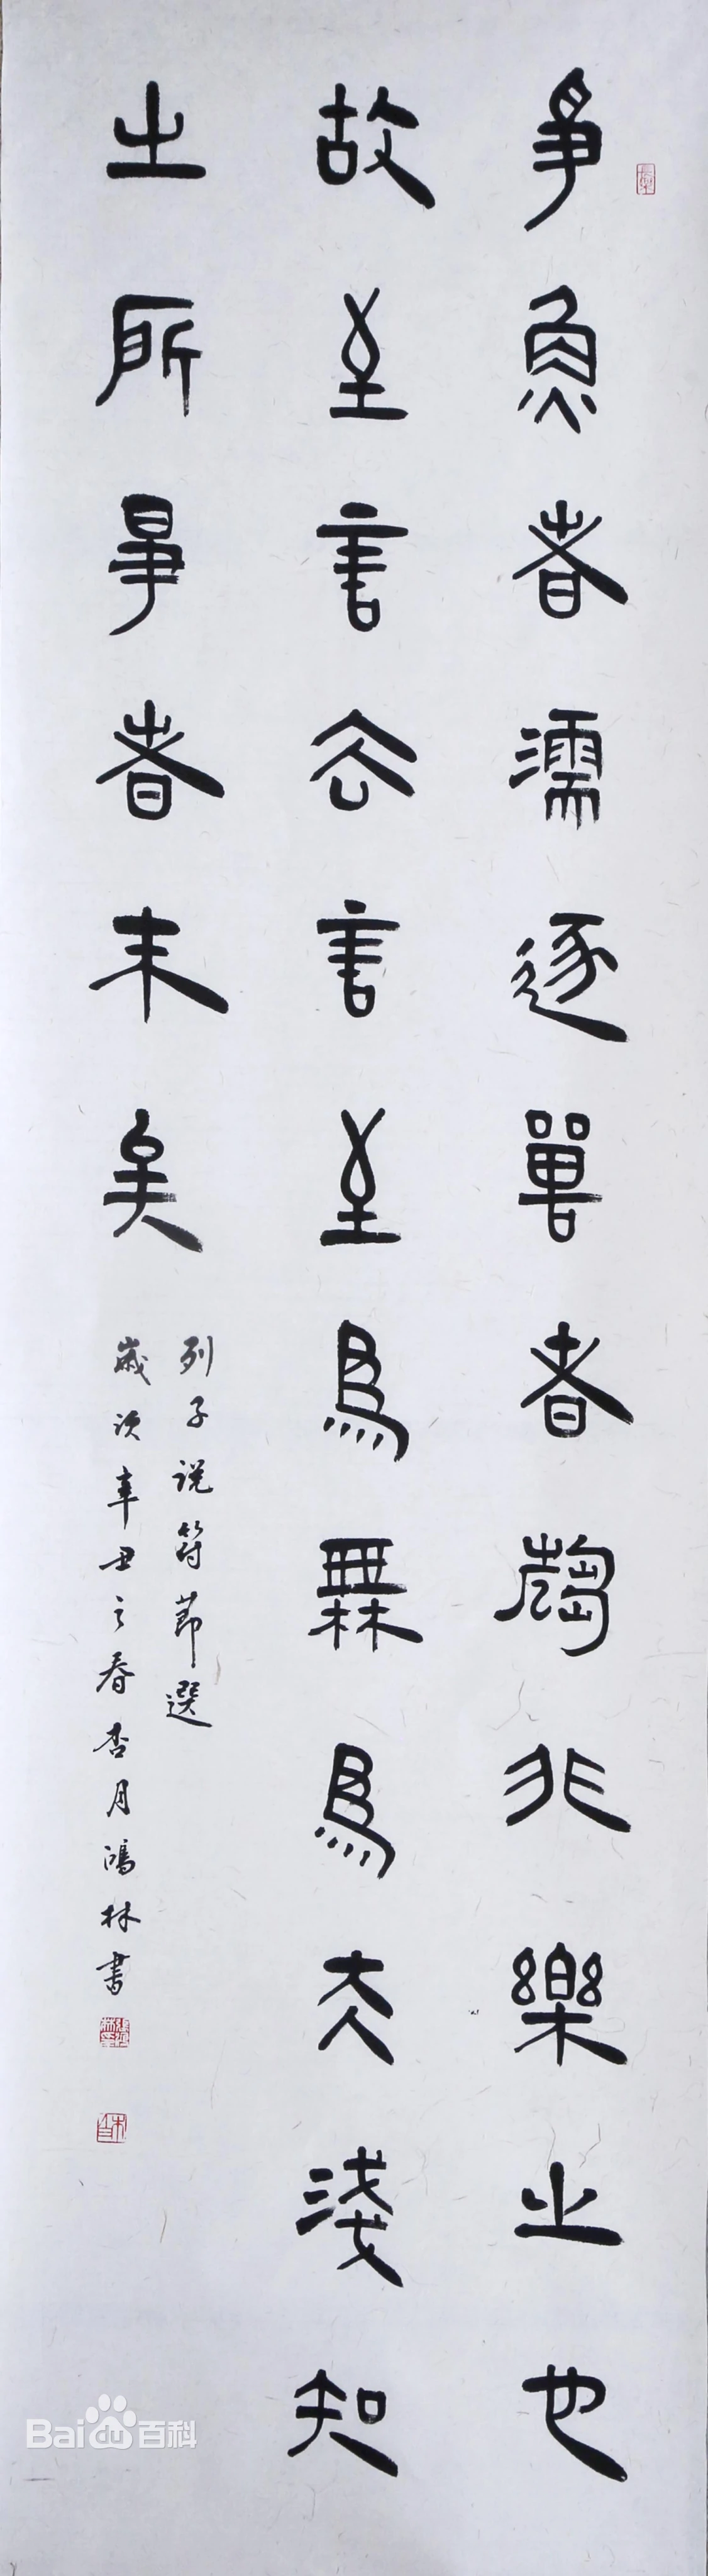 爭魚者濡逐獸者趨非樂之也
故至言去言至為無為夫淺知
之所爭者末矣
列子說符節選
歲次辛丑之春杏月鴻林書
Baidu百科